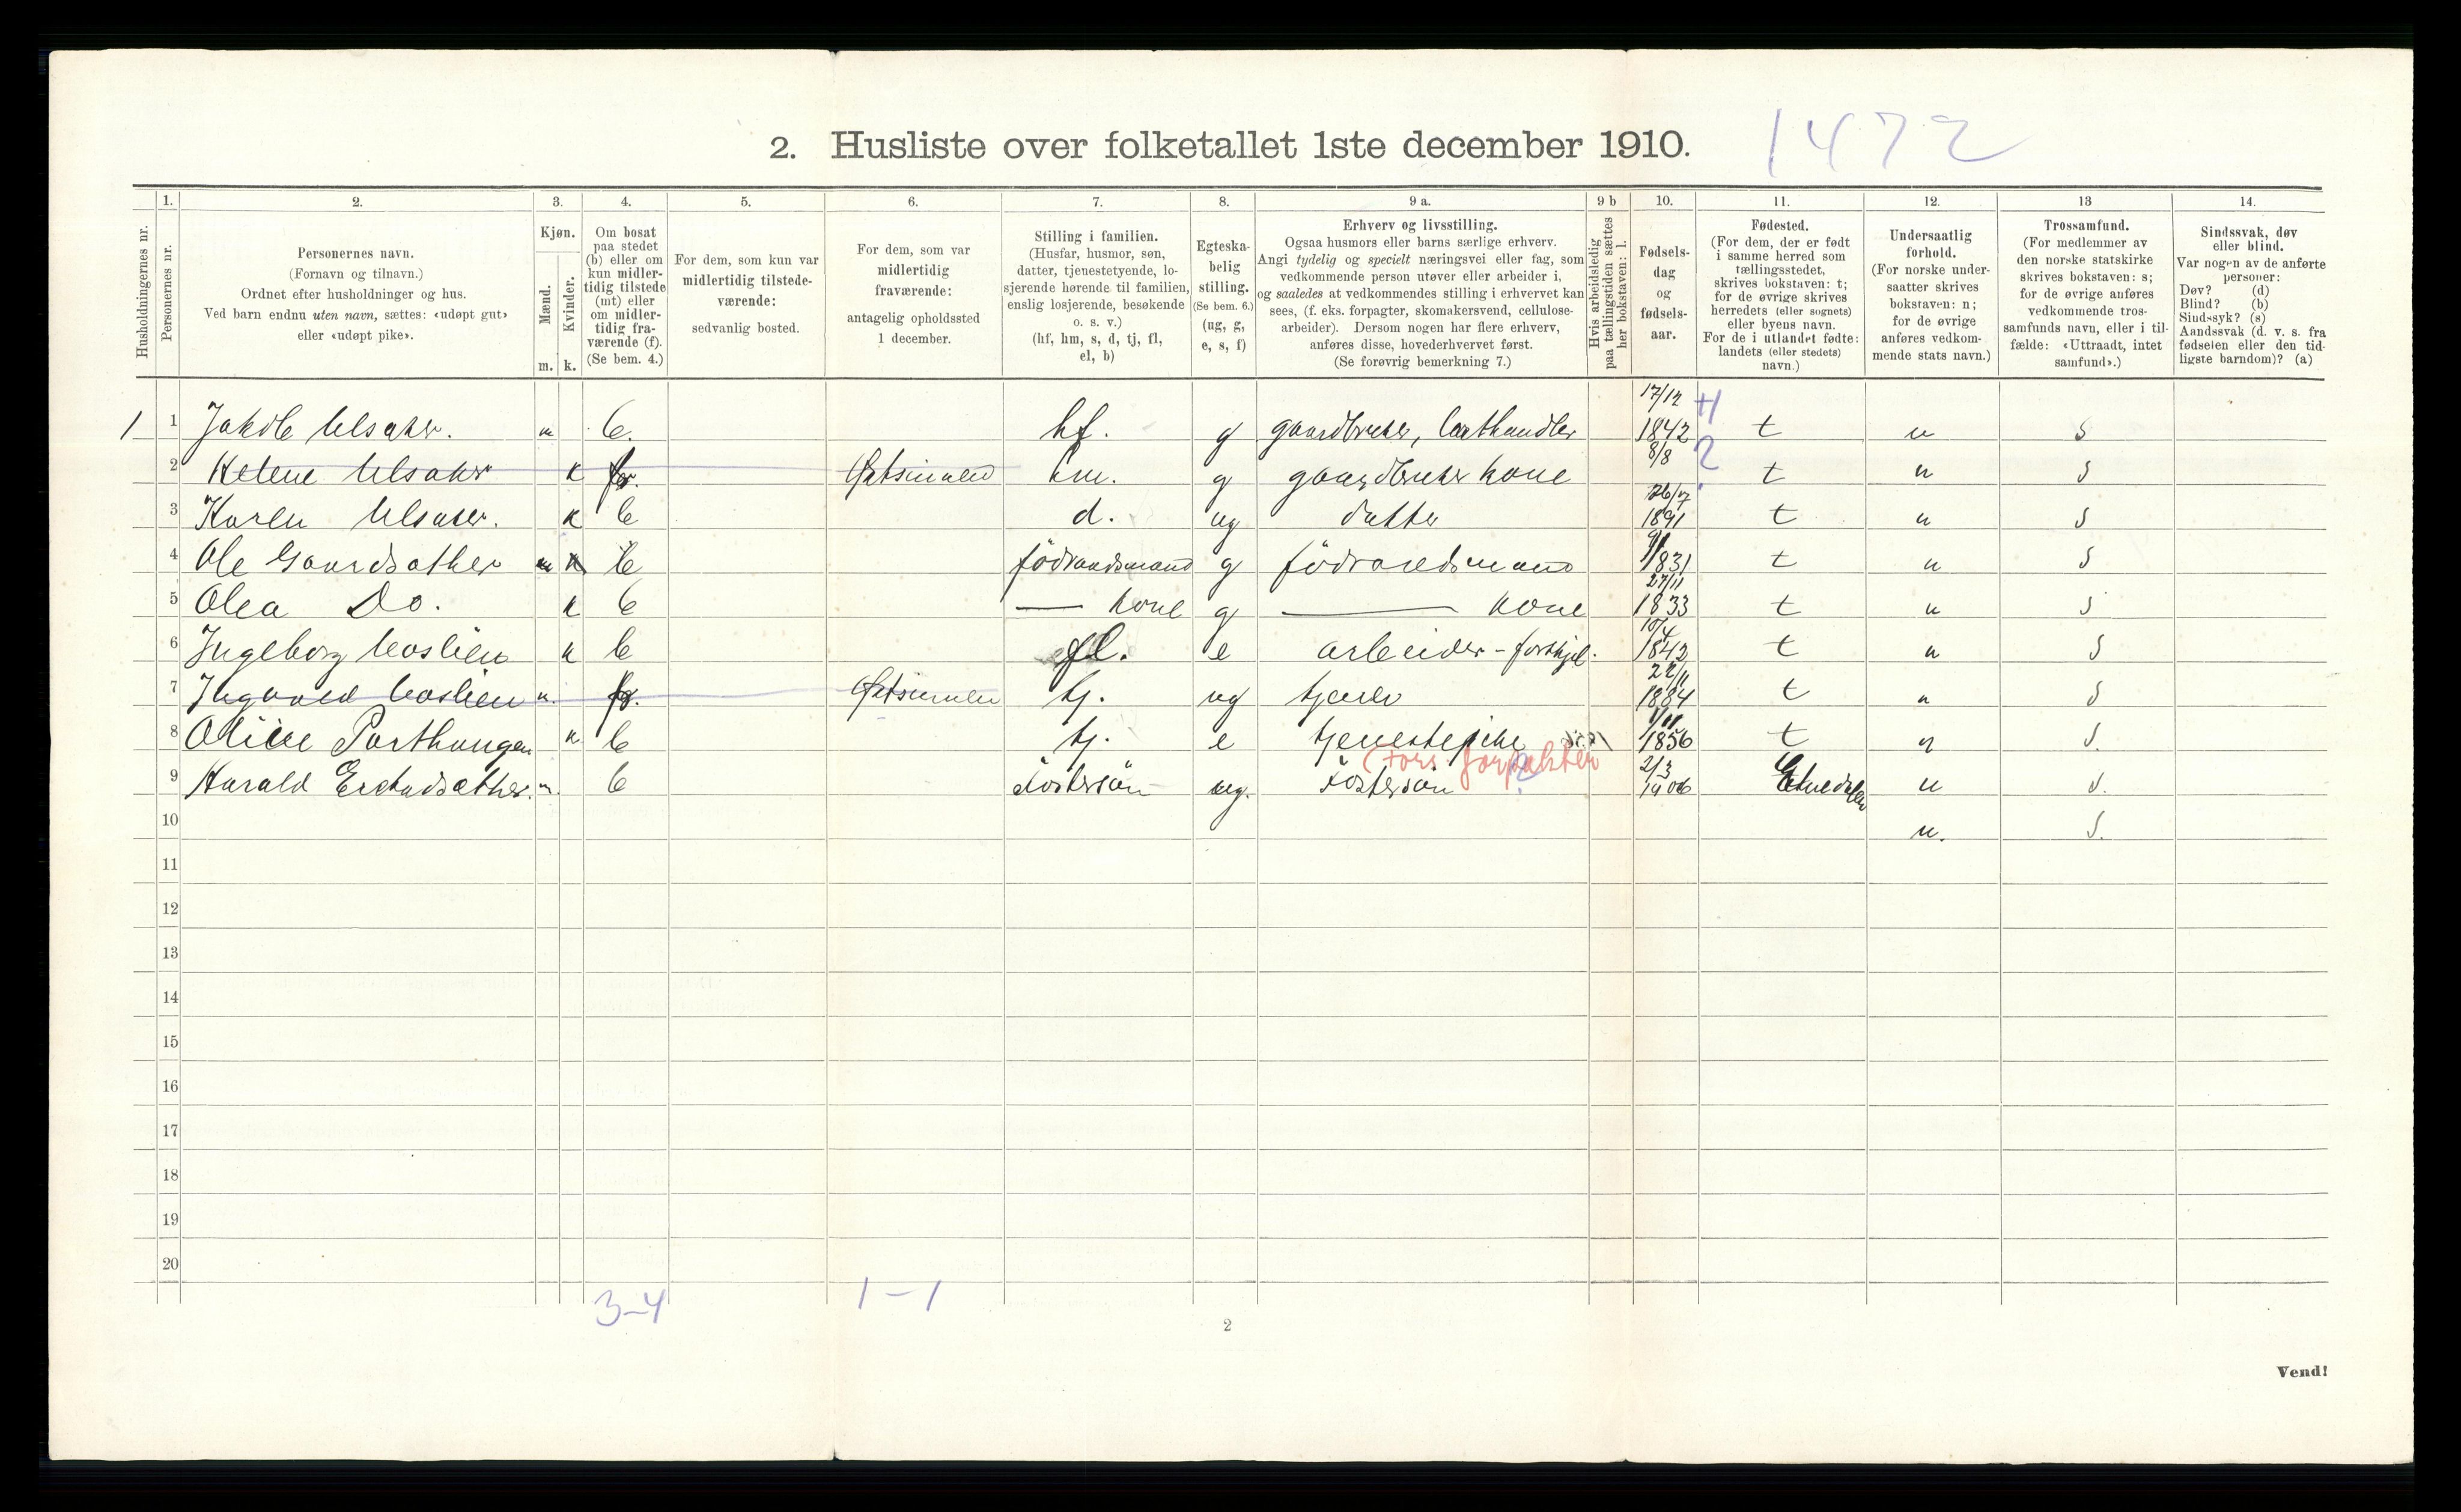 2. Husliste over folketallet 1ste december 1910. 1472
Husholdningernes nr.
1.
Personernes nr.
2.
Personernes navn.
(Fornavn og tilnavn.)
Ordnet efter husholdninger og hus.
Ved barn endnu uten navn, sættes: «udøpt gut»
eller «udøpt pike».
3.
Kjøn.
Mænd.
Kvinder.
m. k.
4.
Om bosat
paa stedet
(b) eller om
kun midler-
tidig tilstede
(mt) eller
om midler-
tidig fra-
værende (f).
(Se bem. 4.)
5.
For dem, som kun var
midlertidig tilstede-
værende:
sedvanlig bosted.
6.
For dem, som var
midlertidig
fraværende:
antagelig opholdssted
1 december.
7.
Stilling i familien.
(Husfar, husmor, søn,
datter, tjenestetyende, lo-
sjerende hørende til familien,
enslig losjerende, besøkende
o. s. v.)
(hf, hm, s, d, tj, fl,
el, b)
8.
Egteska-
belig
stilling.
(Se bem. 6.)
(ug, g,
e, s, f)
9 a.
Erhverv og livsstilling.
Ogsaa husmors eller barns særlige erhverv.
Angi tydelig og specielt næringsvei eller fag, som
vedkommende person utøver eller arbeider i,
og saaledes at vedkommendes stilling i erhvervet kan
sees, (f. eks. forpagter, skomakersvend, cellulose-
arbeider). Dersom nogen har flere erhverv,
anføres disse, hovederhvervet først.
(Se forøvrig bemerkning 7.)
9 b
Hvis arbeidsledig
paa tællingstiden sættes
her bokstaven: l.
10.
Fødsels-
dag
og
fødsels-
aar.
11.
Fødested.
(For dem, der er født
i samme herred som
tællingsstedet,
skrives bokstaven: t;
for de øvrige skrives
herredets (eller sognets)
eller byens navn.
For de i utlandet fødte:
landets (eller stedets)
navn.)
12.
Undersaatlig
forhold.
(For norske under-
saatter skrives
bokstaven: n;
for de øvrige
anføres vedkom-
mende stats navn.)
13
Trossamfund.
(For medlemmer av
den norske statskirke
skrives bokstaven: s;
for de øvrige anføres
vedkommende tros-
samfunds navn, eller i til-
fælde: «Uttraadt, intet
samfund».)
14.
Sindssvak, døv
eller blind.
Var nogen av de anførte
personer:
Døv? (d)
Blind? (b)
Sindssyk? (s)
Aandssvak (d. v. s. fra
fødselen eller den tid-
ligste barndom)? (a)
1 1 Jakob Ulsaker. m b. hf. g gaardbruker, 17/12 1842 t n s
2 Helene Ulsaker k hm. g gaardbruker kone 8/8 ? t n s
3 Karen Ulsaker. k b d. ug datter 1891 t n s
4 Ole m b födraadsmand g födraadsmand 1831 t n s
5 Olea Do. k b — kone g — kone 27/11 1833 t n s
6 Ingeborg k b fl. e arbeider - 1842 t n s
7 m. tj. ug tjener 22/11 1884 t n s
8 k b tj. e tjenestepike 1856 t n s.
9 Harald m. b Fosterson ug. Fosterson 2/3 1906 n s.
10 n. s.
11
12
13
14
15
16
17
18
19
20
3-4 1-1
2
Vend!